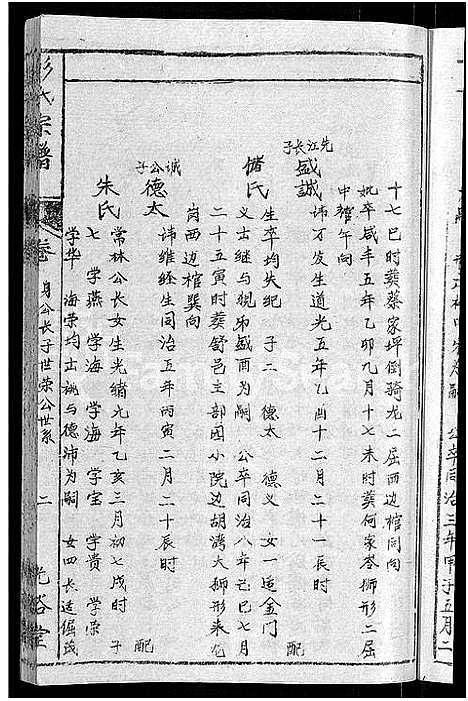 彭氏宗譜
卷
身公長子世荣公世系
二
光裕堂
十七巳时葬蔡家坪倒骑龙二届西边棺同向
妣卒咸丰五年乙卯九月十七未时葬何家岺狮形二届
中棺午向
先江長子
盛誠
讳万发生道光五年乙酉十二月二十一辰时 配
储氏
生卒均失纪 子二 德太 德义 女一适金门
义出继与规弟盛酉为嗣 公卒同治八年己巳七月
二十五寅时葬舒邑主部园小院边胡湾大狮形来仑
岗西边棺巽向
诚公子
德太
讳维经生同治五年丙寅二月二十辰时 配
朱氏
常林公長女生光绪九年乙亥三月初七戌时 子
七 学燕 学海 学海 学宝 学贵 学原
学华 海荣均出祧与德沛为嗣 女四長适倔茂
公卒同治三年甲子五月二